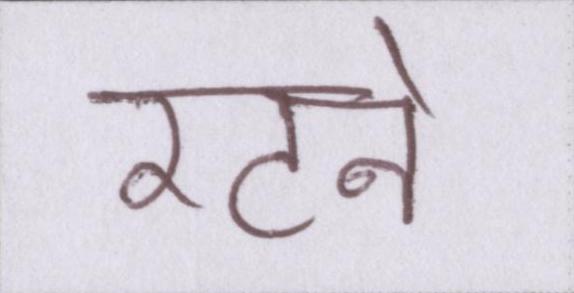 रटने